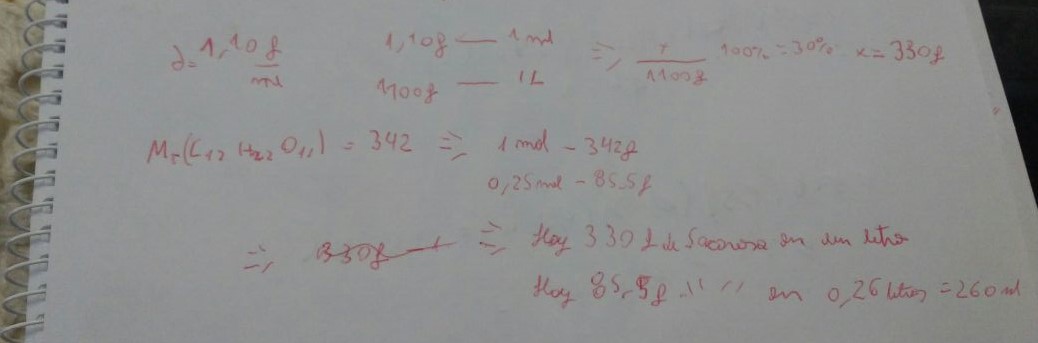 d = 1,10 g/ml 1,10g — 1 ml ⇒ x/1100g 100% = 30% x = 330g
1100g — 1L
Mr(C12 H22 O11) = 342 ⇒ 1 mol - 342g
0,25 mol - 85.5g
⇒ 330g — ⇒ Hay 330 g de Sacarosa en un litro
Hay 85,5g " " en 0,26 litros = 260 ml